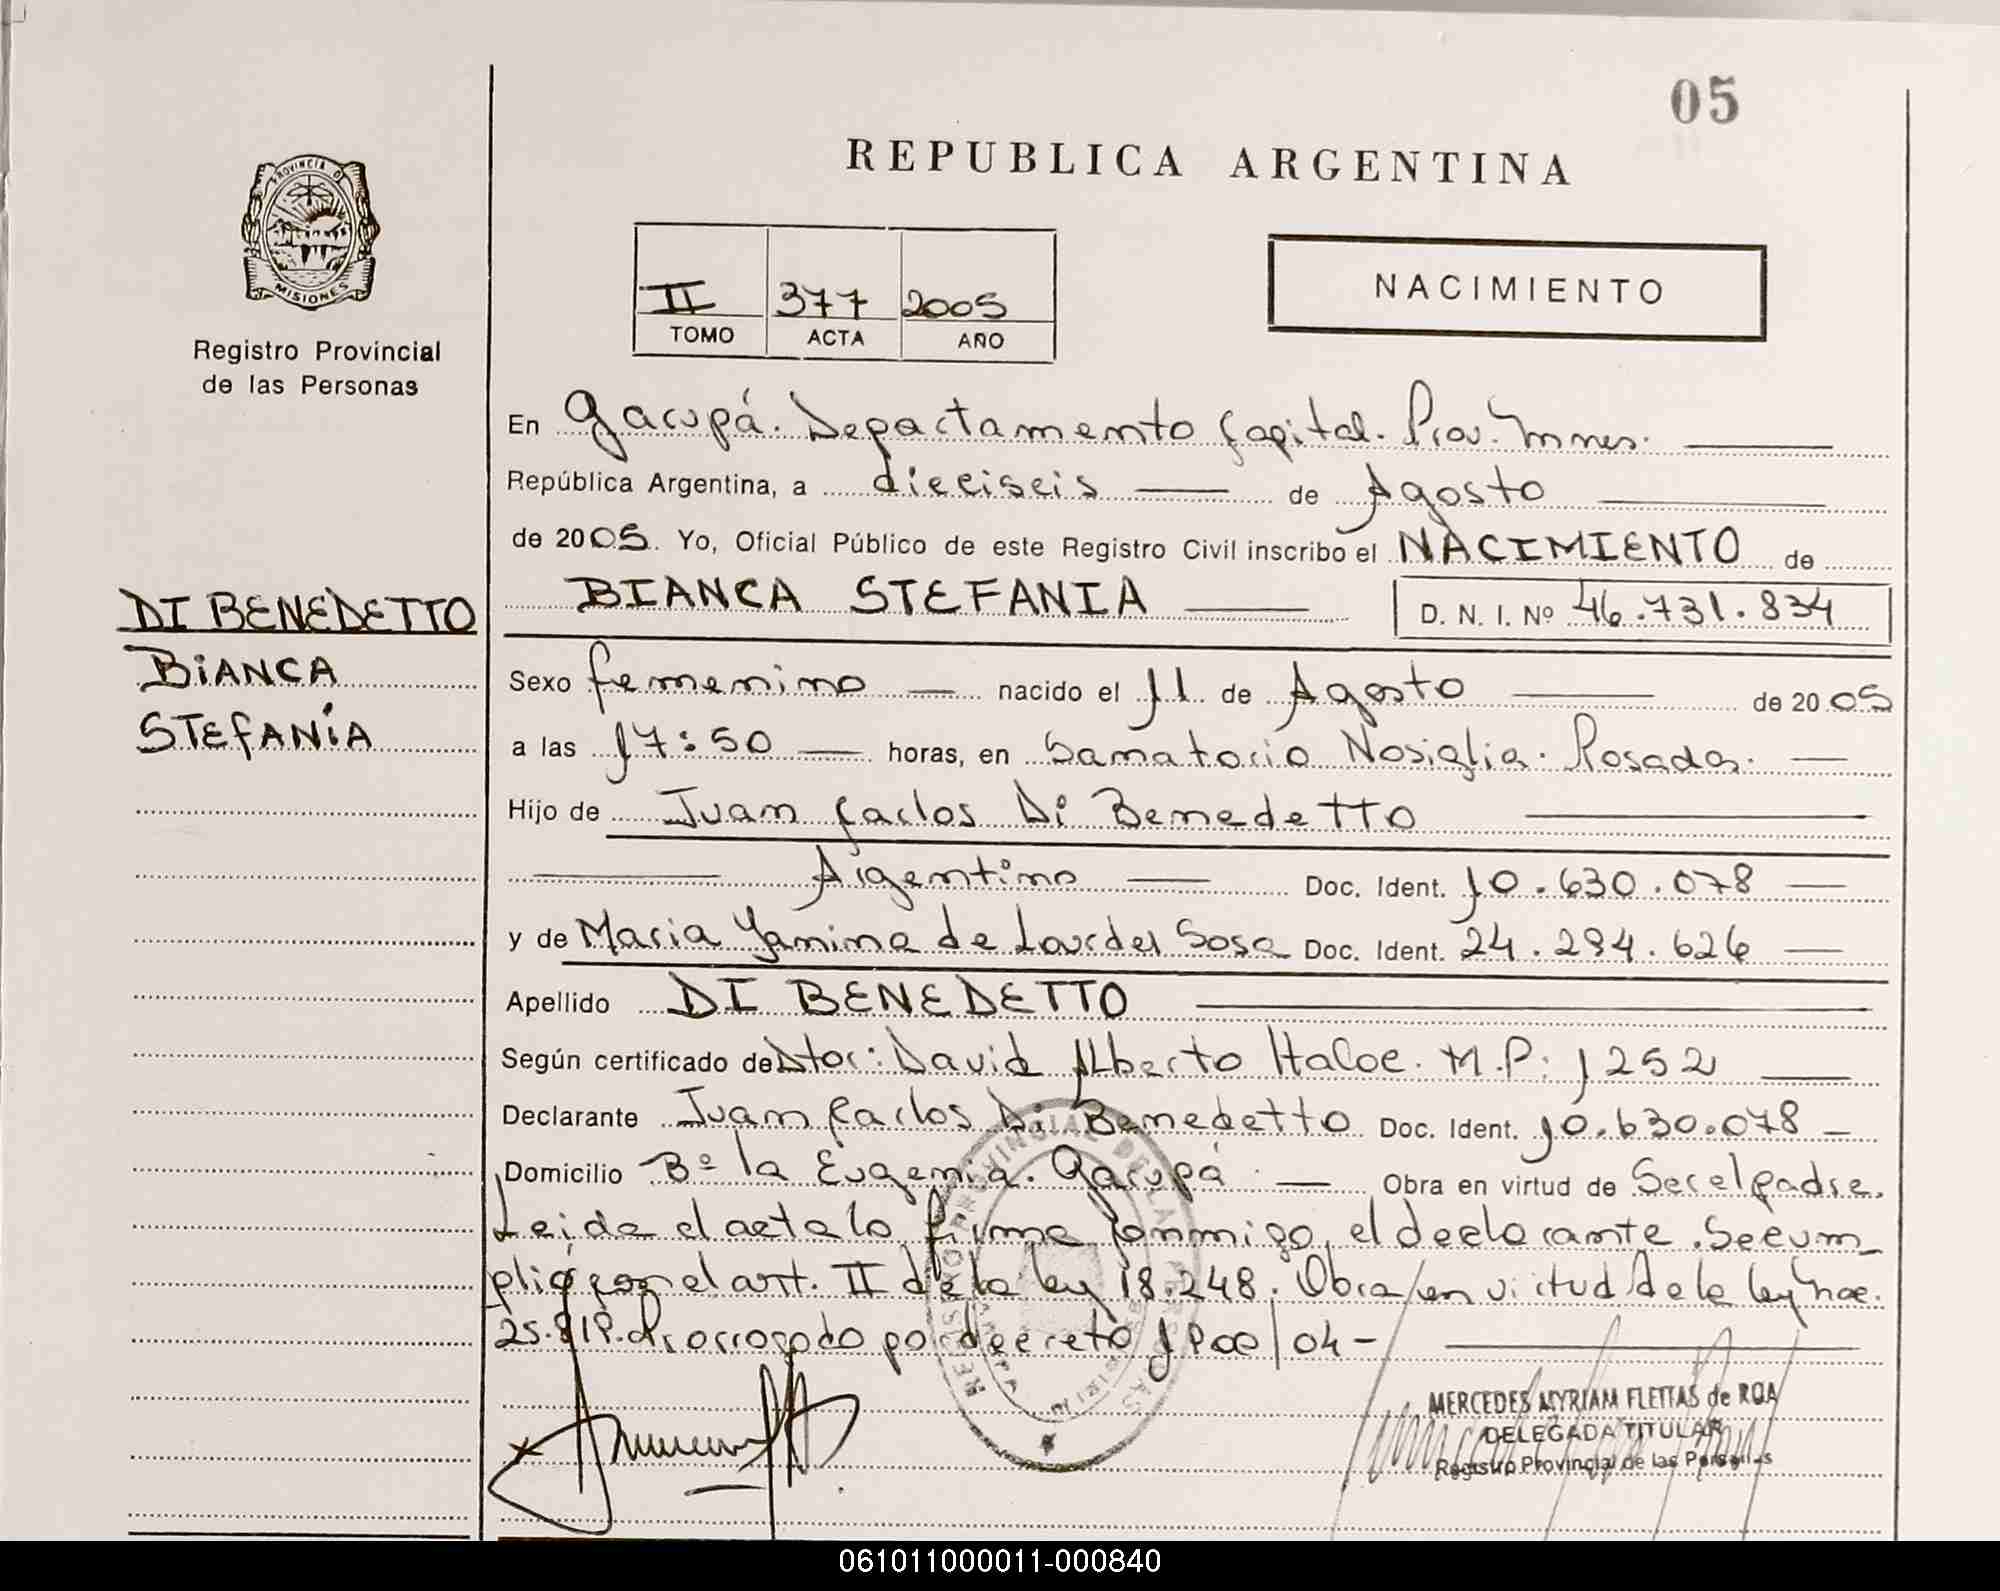 05
REPUBLICA ARGENTINA
PROVINCIA D
MISIONES
Registro Provincial
de las Personas
II 377 2005
TOMO ACTA AÑO
NACIMIENTO
En Garupá. Departamento Capital. Prov. Mnes.
República Argentina, a dieciseis de Agosto
de 2005. Yo, Oficial Público de este Registro Civil inscribo el NACIMIENTO de
BIANCA STEFANIA D. N. I. Nº 46.731.834
DI BENEDETTO
BIANCA
STEFANÍA
Sexo femenino nacido el 11 de Agosto de 2005
a las 17:50 horas, en Sanatorio Nosiglia. Posadas.
Hijo de Juan Carlos Di Benedetto
Argentino Doc. Ident. 10.630.078
y de Maria Yanina de Lourdes Sosa Doc. Ident. 24.294.626
Apellido DI BENEDETTO
Según certificado de Dtor: David Alberto M.P: 1252
Declarante Juan Carlos Di Benedetto Doc. Ident. 10.630.078
Domicilio Bº la Eugenia. Garupá Obra en virtud de Ser el padre.
Leida el acta lo firma conmigo el declarante. Se cum_
plió con el art. II de la ley 18.248. Obra en virtud de la ley nac.
25.819. Prorrogado por decreto /04-
MERCEDES MYRIAM FLEITAS de ROA
DELEGADA TITULAR
Registro Provincial de las Personas
061011000011-000840